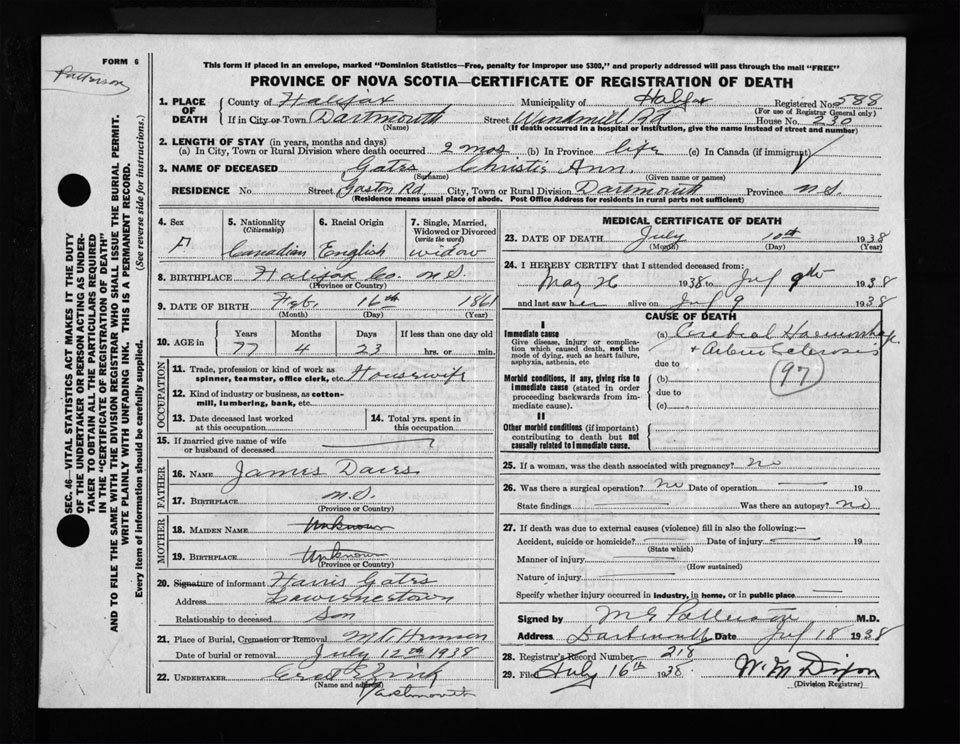 FORM 6
Patterson
This form if placed in an envelope, marked "Dominion Statistics—Free, penalty for improper use $300," and properly addressed will pass through the mail "FREE"
PROVINCE OF NOVA SCOTIA—CERTIFICATE OF REGISTRATION OF DEATH
SEC. 46—VITAL STATISTICS ACT MAKES IT THE DUTY
OF THE UNDERTAKER OR PERSON ACTING AS UNDER-
TAKER TO OBTAIN ALL THE PARTICULARS REQUIRED
IN THE "CERTIFICATE OF REGISTRATION OF DEATH"
AND TO FILE THE SAME WITH THE DIVISION REGISTRAR WHO SHALL ISSUE THE BURIAL PERMIT.
WRITE PLAINLY WITH UNFADING INK. THIS IS A PERMANENT RECORD.
Every item of information should be carefully supplied. (See reverse side for instructions.)
1. PLACE OF DEATH County of Halifax Municipality of Halifax Registered No. 588
(For use of Registrar General only)
If in City or Town Dartmouth Street Windmill Rd House No. 230
(Name) (If death occurred in a hospital or institution, give the name instead of street and number)
2. LENGTH OF STAY (in years, months and days)
(a) In City, Town or Rural Division where death occurred 2 mos (b) In Province life (c) In Canada (if immigrant)
3. NAME OF DECEASED Gates Christie Ann.
(Surname) (Given name or names)
RESIDENCE No. Street Gaston Rd. City, Town or Rural Division Dartmouth Province N.S.
(Residence means usual place of abode. Post Office Address for residents in rural parts not sufficient)
4. Sex F
5. Nationality (Citizenship) Canadian
6. Racial Origin English
7. Single, Married, Widowed or Divorced (write the word) widow
8. BIRTHPLACE Halifax Co. N.S.
(Province or Country)
9. DATE OF BIRTH Feb. 16th 1861
(Month) (Day) (Year)
10. AGE in Years Months Days If less than one day old
77 4 23 hrs. or min.
OCCUPATION
11. Trade, profession or kind of work as spinner, teamster, office clerk, etc. Housewife
12. Kind of industry or business, as cotton-mill, lumbering, bank, etc.
13. Date deceased last worked at this occupation
14. Total yrs. spent in this occupation
15. If married give name of wife or husband of deceased
FATHER
16. NAME James Dares
17. BIRTHPLACE N.S.
(Province or Country)
MOTHER
18. MAIDEN NAME Unknown
19. BIRTHPLACE Unknown
(Province or Country)
20. Signature of informant Harris Gates
Address
Relationship to deceased Son
21. Place of Burial, Cremation or Removal Mt. Hermon
Date of burial or removal July 12th 1938
22. UNDERTAKER Zink
(Name and address) Dartmouth
MEDICAL CERTIFICATE OF DEATH
23. DATE OF DEATH July 10th 1938
(Month) (Day) (Year)
24. I HEREBY CERTIFY that I attended deceased from:
May 26 1938 to July 9th 1938
and last saw her alive on July 9 1938
CAUSE OF DEATH
I
Immediate cause
Give disease, injury or complication which caused death, not the mode of dying, such as heart failure, asphyxia, asthenia, etc
(a) Cerebral Haemorrhage
+ Arterio Sclerosis
due to
97
Morbid conditions, if any, giving rise to immediate cause (stated in order proceeding backwards from immediate cause).
(b)
due to
(c)
II
Other morbid conditions (if important) contributing to death but not causally related to immediate cause.
25. If a woman, was the death associated with pregnancy? no
26. Was there a surgical operation? No Date of operation 19
State findings Was there an autopsy? no
27. If death was due to external causes (violence) fill in also the following:—
Accident, suicide or homicide? Date of injury 19
(State which)
Manner of injury
(How sustained)
Nature of injury
Specify whether injury occurred in industry, in home, or in public place
Signed by M G Patterson M.D.
Address Dartmouth Date July 18 1938
28. Registrar's Record Number 218
29. Filed July 16th 1938 W. M Dixon
(Division Registrar)